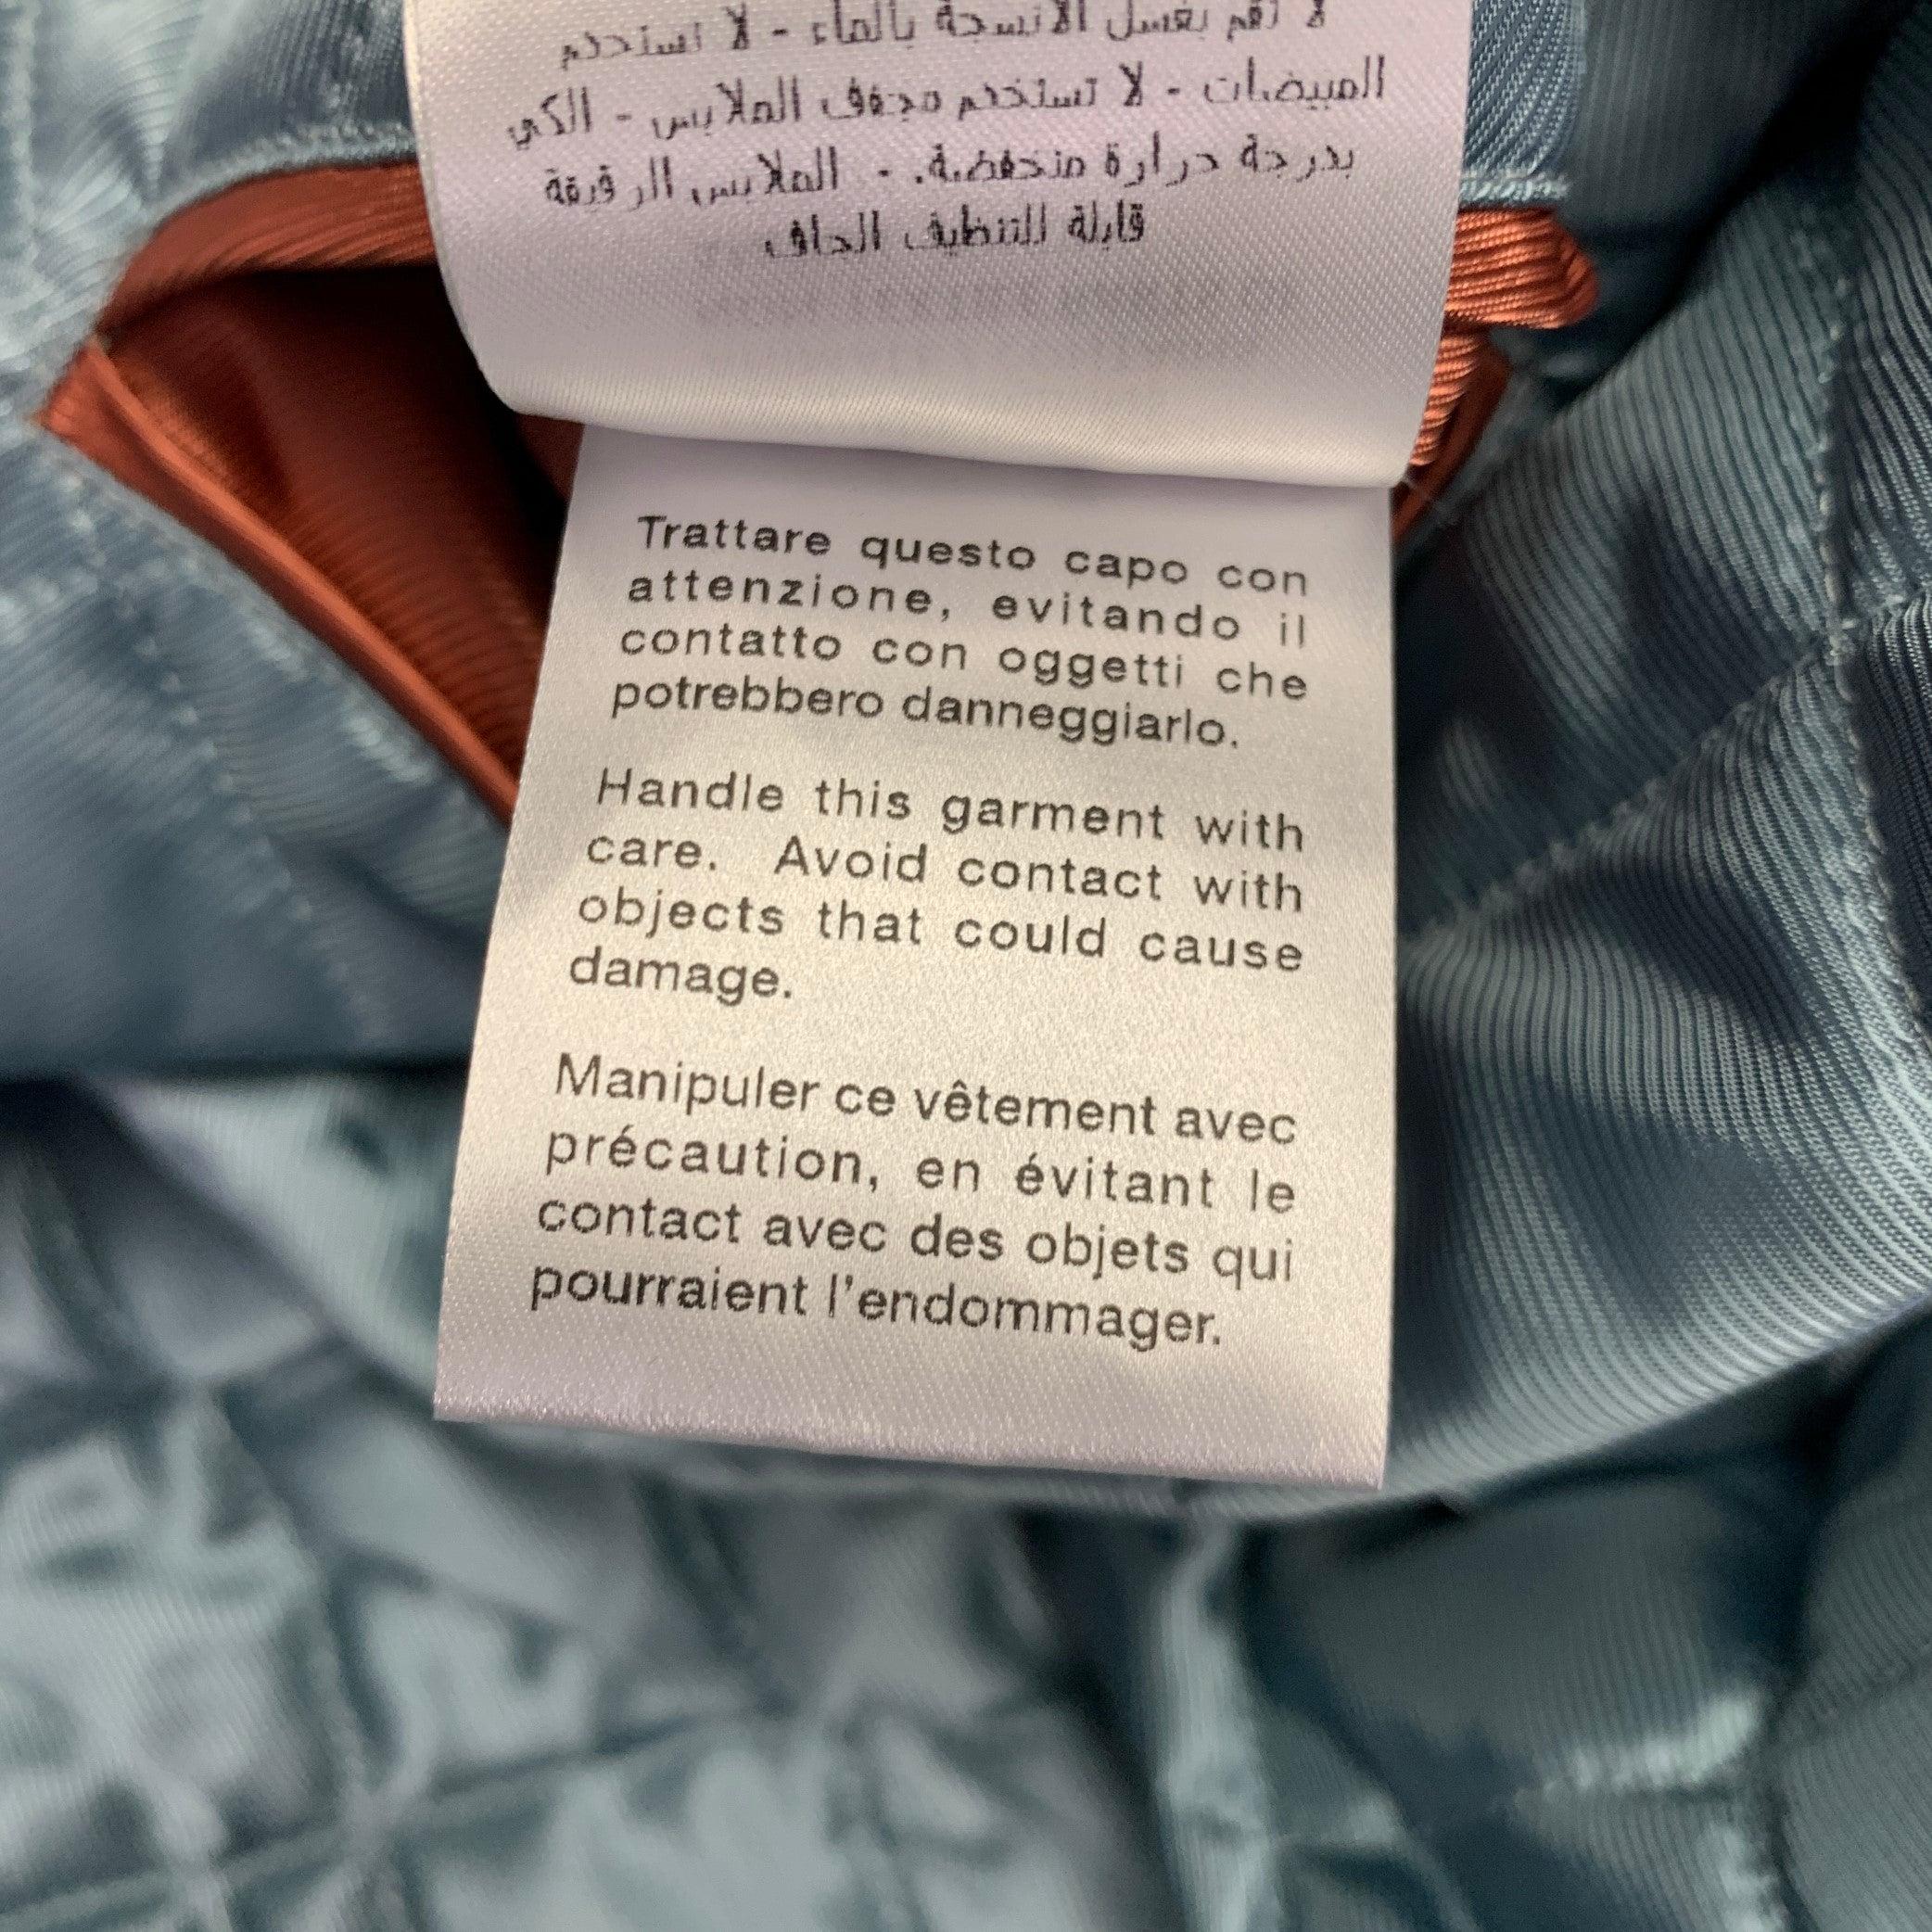 لا تقم بغسل الأنسجة بالماء - لا تستخدم
المبيضات - لا تستخدم مجفف الملابس - الكي
بدرجة حرارة منخفضة. - الملابس الرقيقة
قابلة للتنظيف الجاف
Trattare questo capo con
attenzione, evitando il
contatto con oggetti che
potrebbero danneggiarlo.
Handle this garment with
care. Avoid contact with
objects that could cause
damage.
Manipuler ce vêtement avec
précaution, en évitant le
contact avec des objets qui
pourraient l'endommager.